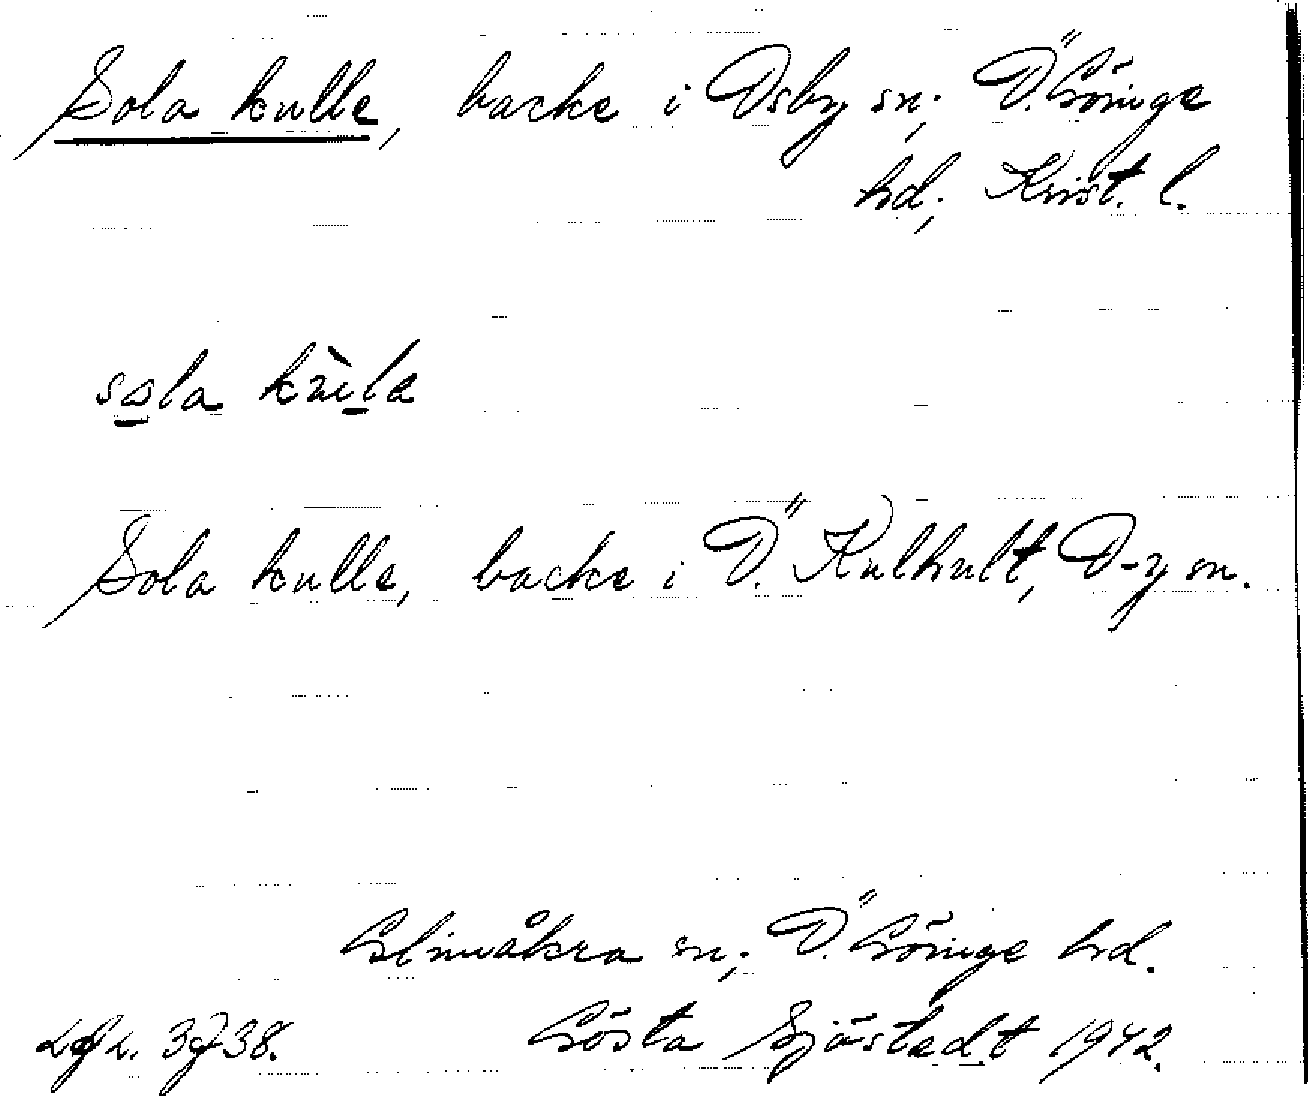 Sola kulle, backe i Osby sn; Ö. Göinge
hd; Krist. l.
sola kùla
Sola kulle, backe i Ö. Kulhult, O-y sn.
Glimåkra sn; Ö. Göinge hd.
Gösta Sjöstedt 1942.